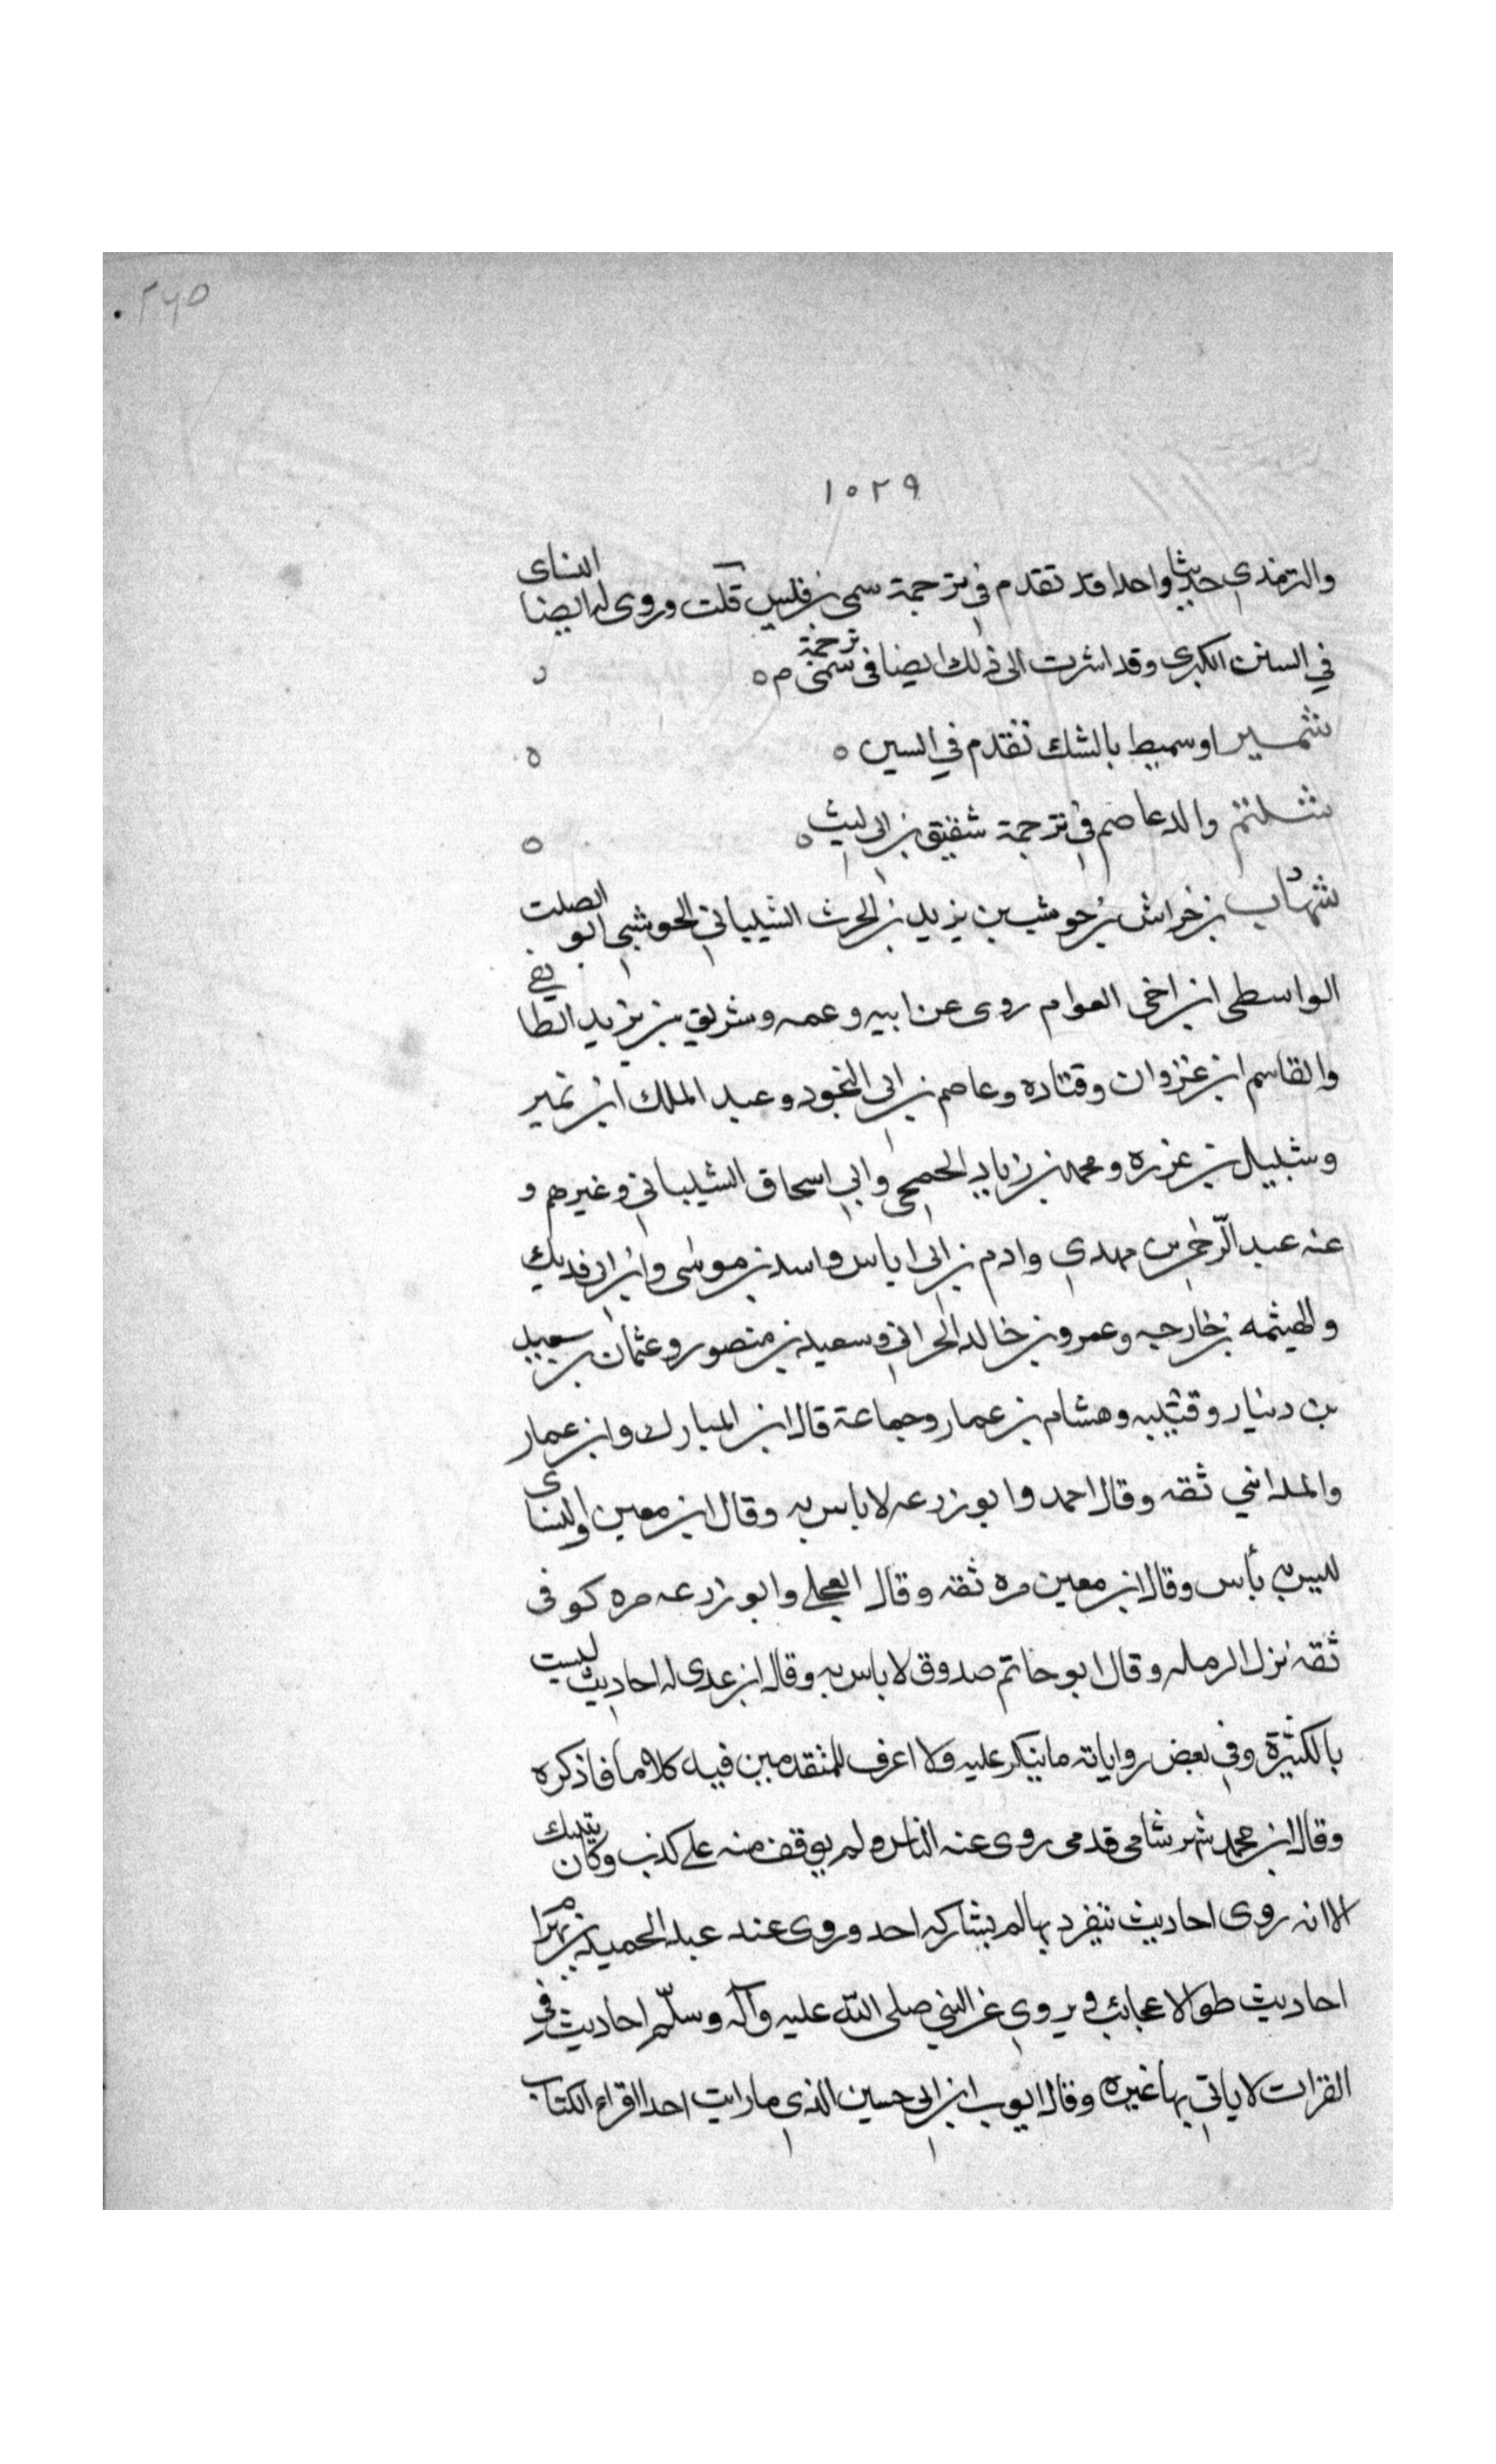 ٢٦٥
١٠٢٩
والترمذي حديثا واحدا قد تقدم في ترجمة سمى بن قيس قلت وروى له ايضا النساى
في السنن الكبرى وقد اشرت الى ذلك ايضا في ترجمة سمى م ه
شمير او سميط بالشك تقدم في السين ه
شنتم والد عاصم في ترجمة شقيق بن ابى ليث ه
شهاب بن خراش بن حوشب بن يزيد بن الحرث الشيبانى الحوشبى ابو الصلت
الواسطى ابن اخى العوام روى عن ابيه وعمه وشريق بن يزيد الطايفي
والقاسم ابن غزوان وقتاده وعاصم بن ابى النجود وعبد الملك ابن نمير
وشبيل بن عزره ومحمد بن زياد الجمحى وابى اسحاق الشيبانى وغيرهم و
عنه عبد الرحمن بن مهدي وادم بن ابى اياس واسد بن موسى وابن ابى فديك
والهيثمه بن خارجه وعمرو بن خالد الحرانى وسعيد بن منصور وعثمان بن سعيد
بن دينار وقتيبه وهشام بن عمار وجماعة قال ابن المبارك وابن عمار
والمدائني ثقه وقال احمد وابو زرعه لا باس به وقال ابن معين والنساى
ليس به بأس وقال ابن معين مره ثقه وقال العجلى وابو زرعه مره كوفى
ثقه نزل الرمله وقال ابو حاتم صدوق لا باس به وقال ابن عدى له احاديث ليست
بالكثيرة وفي بعض رواياته ما ينكر عليه ولا اعرف للمتقدمين فيه كلاما فاذكره
وقال ابن محمد شهر شامى قدمى روى عنه الناس ولم يوقف منه على كذب وكان يتنسك
الا انه روى احاديث تنفرد بها لم يشاركه احد وروى عند عبد الحميد بن بهرام
احاديث طوالا عجائب ويروي عن النبي صلى الله عليه وآله وسلّم احاديث في
القرات لا ياتى بها غيره وقال ايوب ابن ابى حسين الذى ما رايت احدا اقراء الكتاب